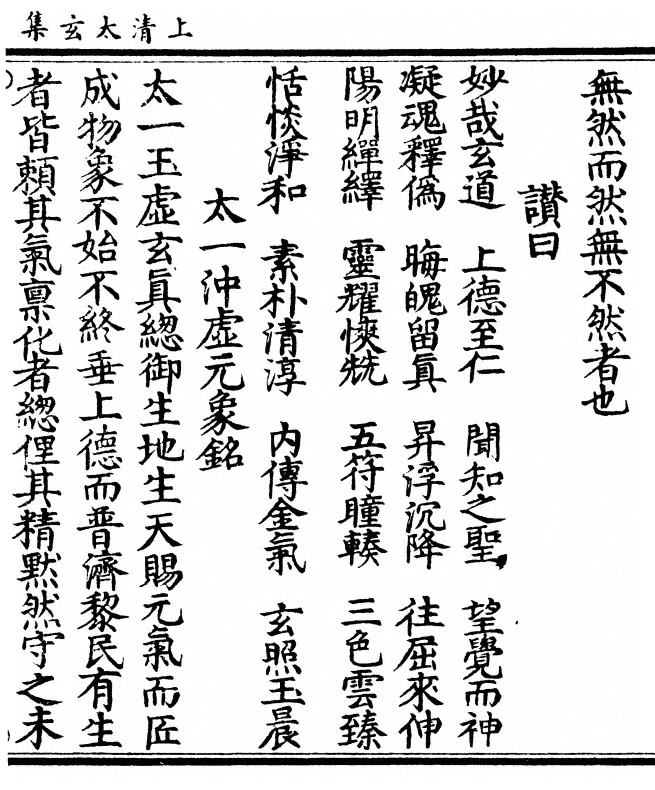 上清太玄集
無然而然無不然者也
讃曰
妙哉玄道 上德至仁 聞知之聖 望覺而神
凝魂釋僞 晦魄留眞 昇浮沉降 往屈來伸
陽明繟繹 靈耀恱兟 五符瞳輳 三色雲臻
恬惔淨和 素朴清淳 內傳金氣 玄照玉晨
太一沖虛元象銘
太一玉虛玄眞總御生地生天賜元氣而匠
成物象不始不終垂上德而普濟黎民有生
者皆頼其氣稟化者緫俚其精默然守之未